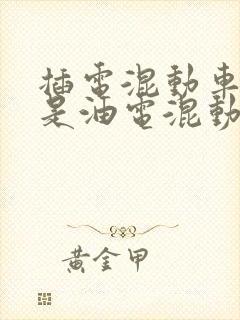 插電混動車
是油電混動
黃金甲